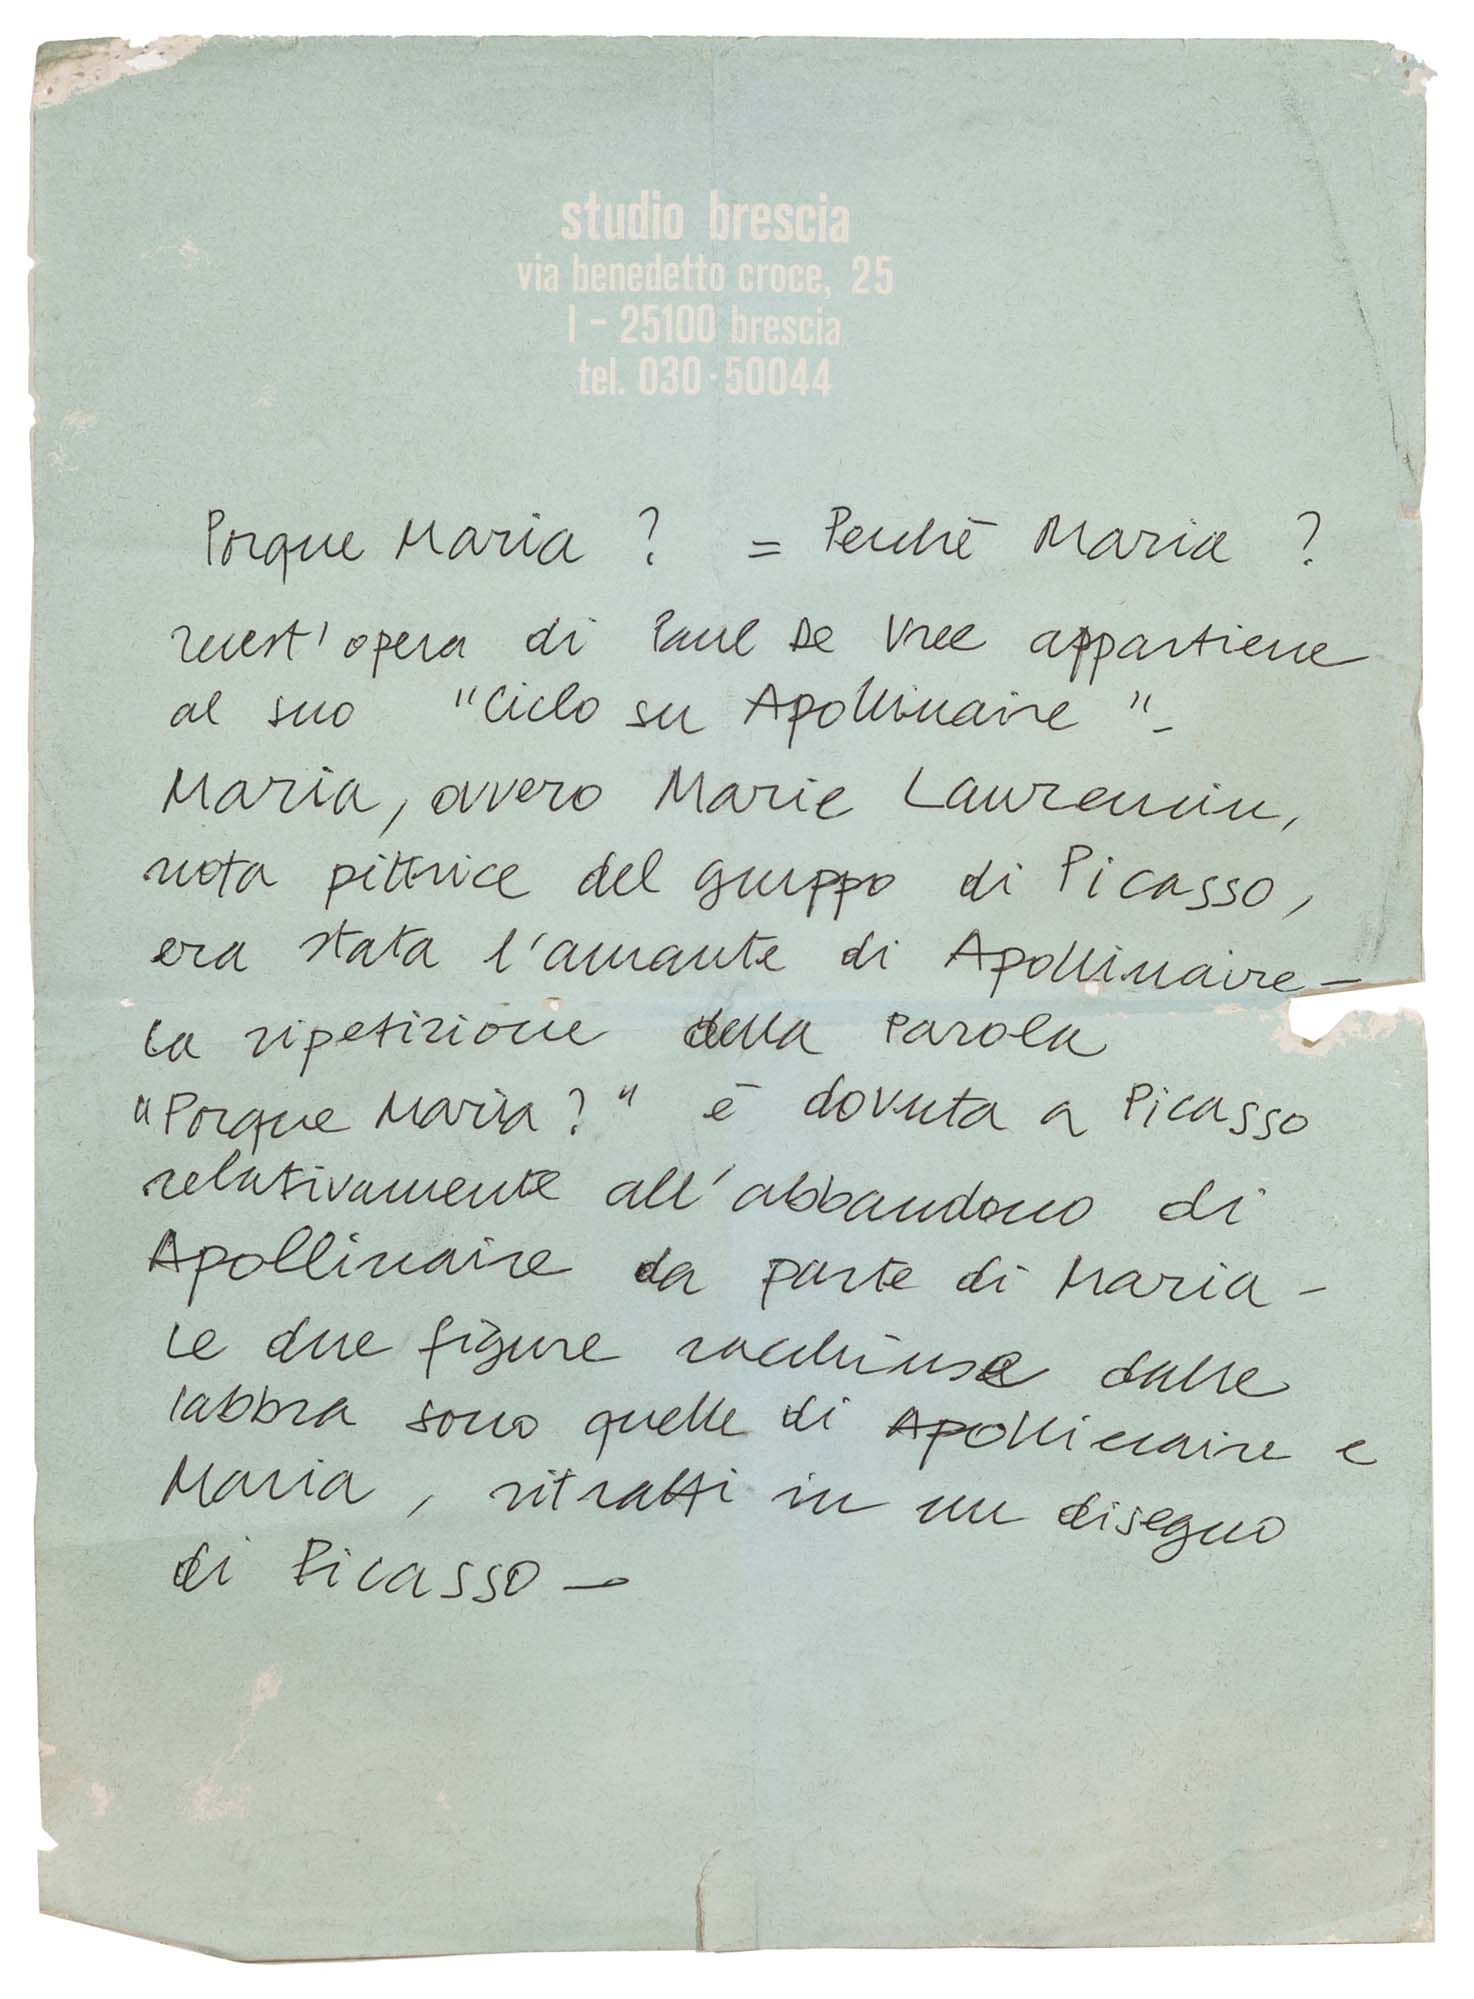 studio brescia
via benedetto croce, 25
I - 25100 brescia
tel. 030 · 50044
Porque Maria ? = Perchè Maria ?
quest' opera di Paul De Vree appartiene
al suo "Ciclo su Apollinaire" -
Maria, ovvero Marie Laurencin,
nota pittrice del gruppo di Picasso,
era stata l'amante di Apollinaire -
la ripetizione della parola
"Porque Maria?" è dovuta a Picasso
relativamente all'abbandono di
Apollinaire da parte di Maria -
le due figure racchiuse dalle
labbra sono quelle di Apollinaire e
Maria, ritratti in un disegno
di Picasso -